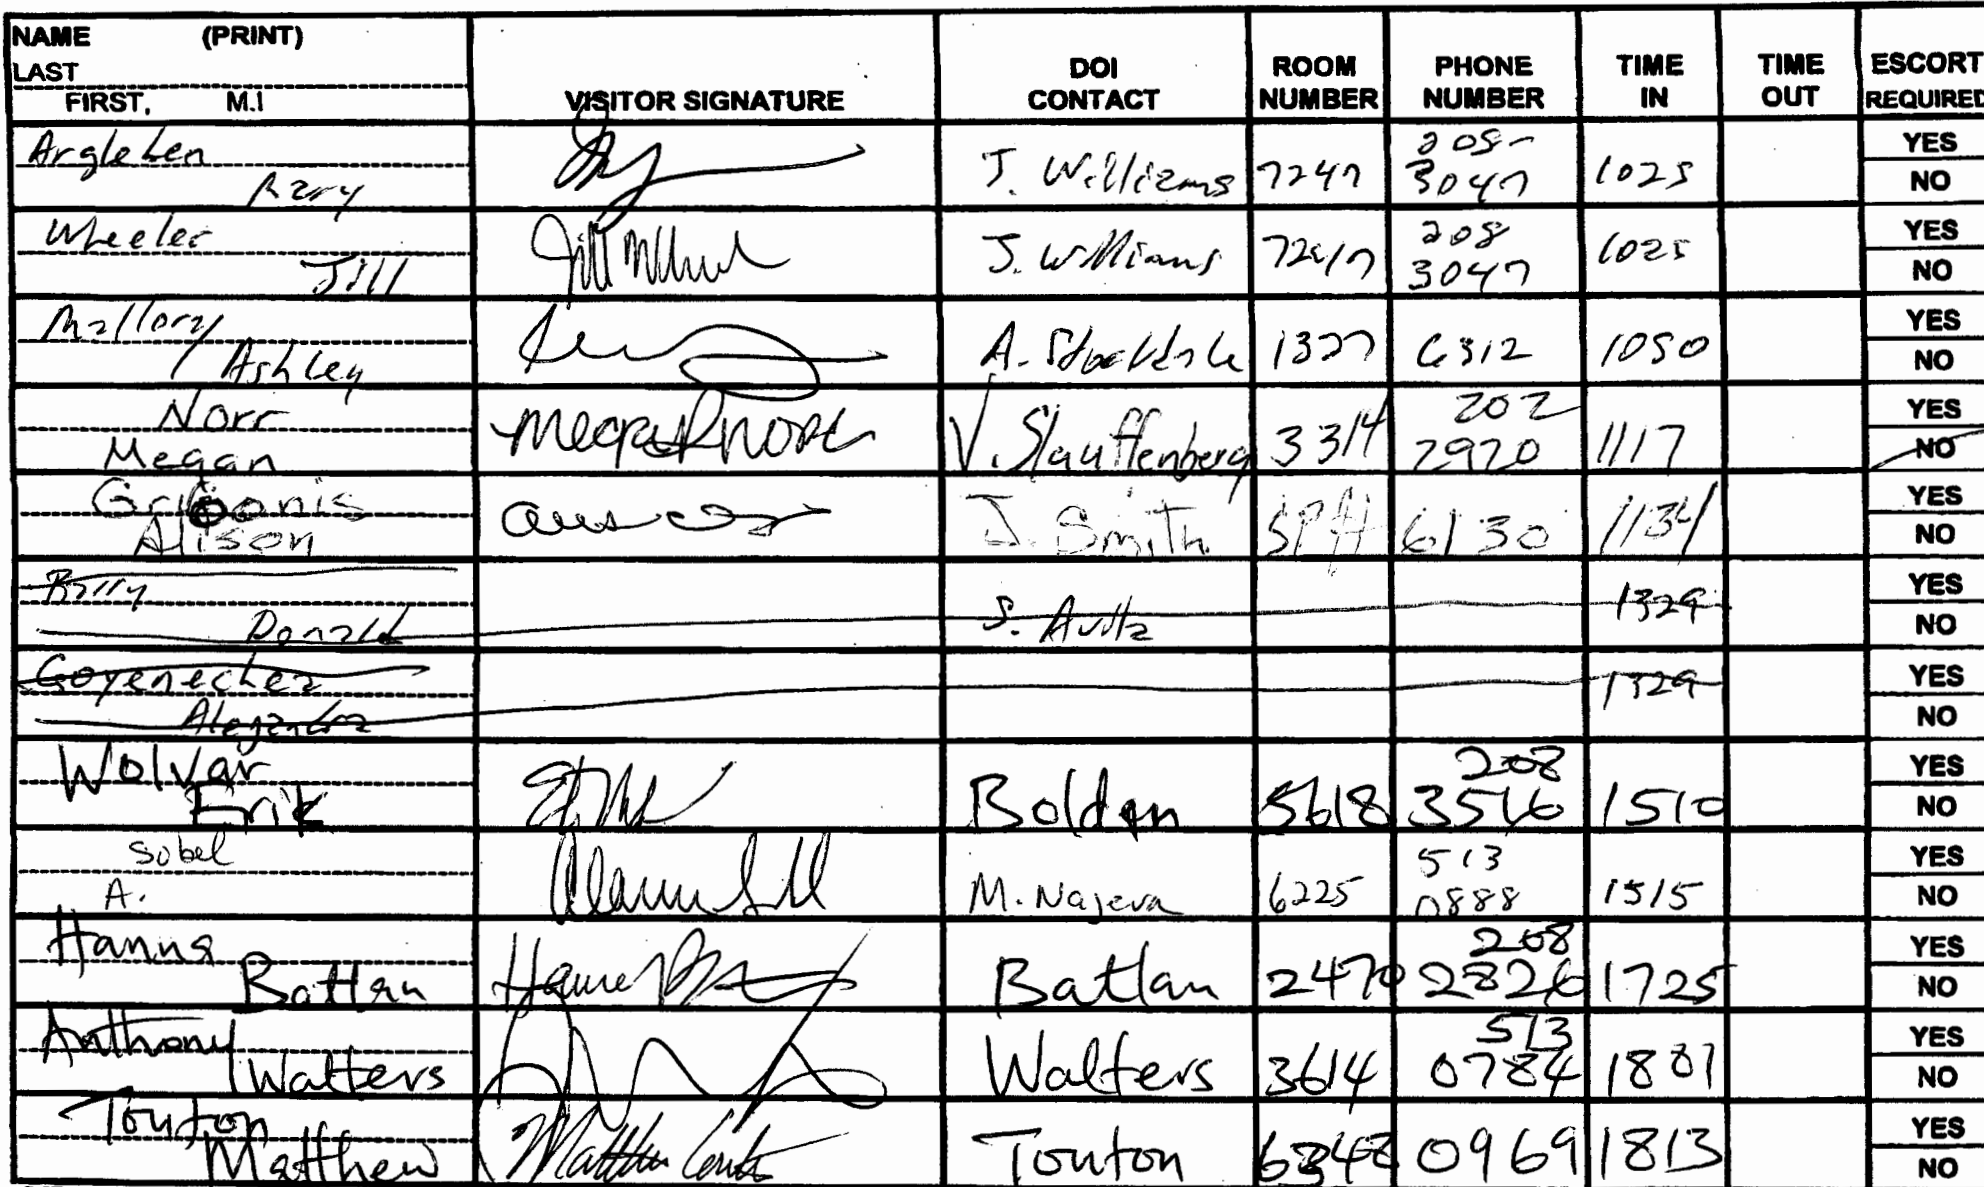 NAME (PRINT)
LAST
FIRST, M.I
VISITOR SIGNATURE
DOI CONTACT
ROOM NUMBER
PHONE NUMBER
TIME IN
TIME OUT
ESCORT REQUIRED
J. Williams 7247 3047 1025 YES
NO
Wheeler
Jill J. Williams 7247 208 3047 1025 YES
NO
Mallory
Ashley 1327 6312 1050 YES
NO
Norr
Megan V. Stauffenberg 3314 202 2970 1117 YES
NO
Alison J. Smith 6130 1134 YES
NO
Barry
Donald S. Aultz 1329 YES
NO
Goyenechea
Alejandra 1329 YES
NO
Wolvar
Erik Bolden 5618 208 3516 1510 YES
NO
Sobel
A. M. Najera 6225 513 0888 1515 YES
NO
Hanna
Batlan Batlan 2470 208 2826 1725 YES
NO
Anthony
Walters Walters 3614 513 0784 1801 YES
NO
Touton
Matthew Touton 0969 1813 YES
NO